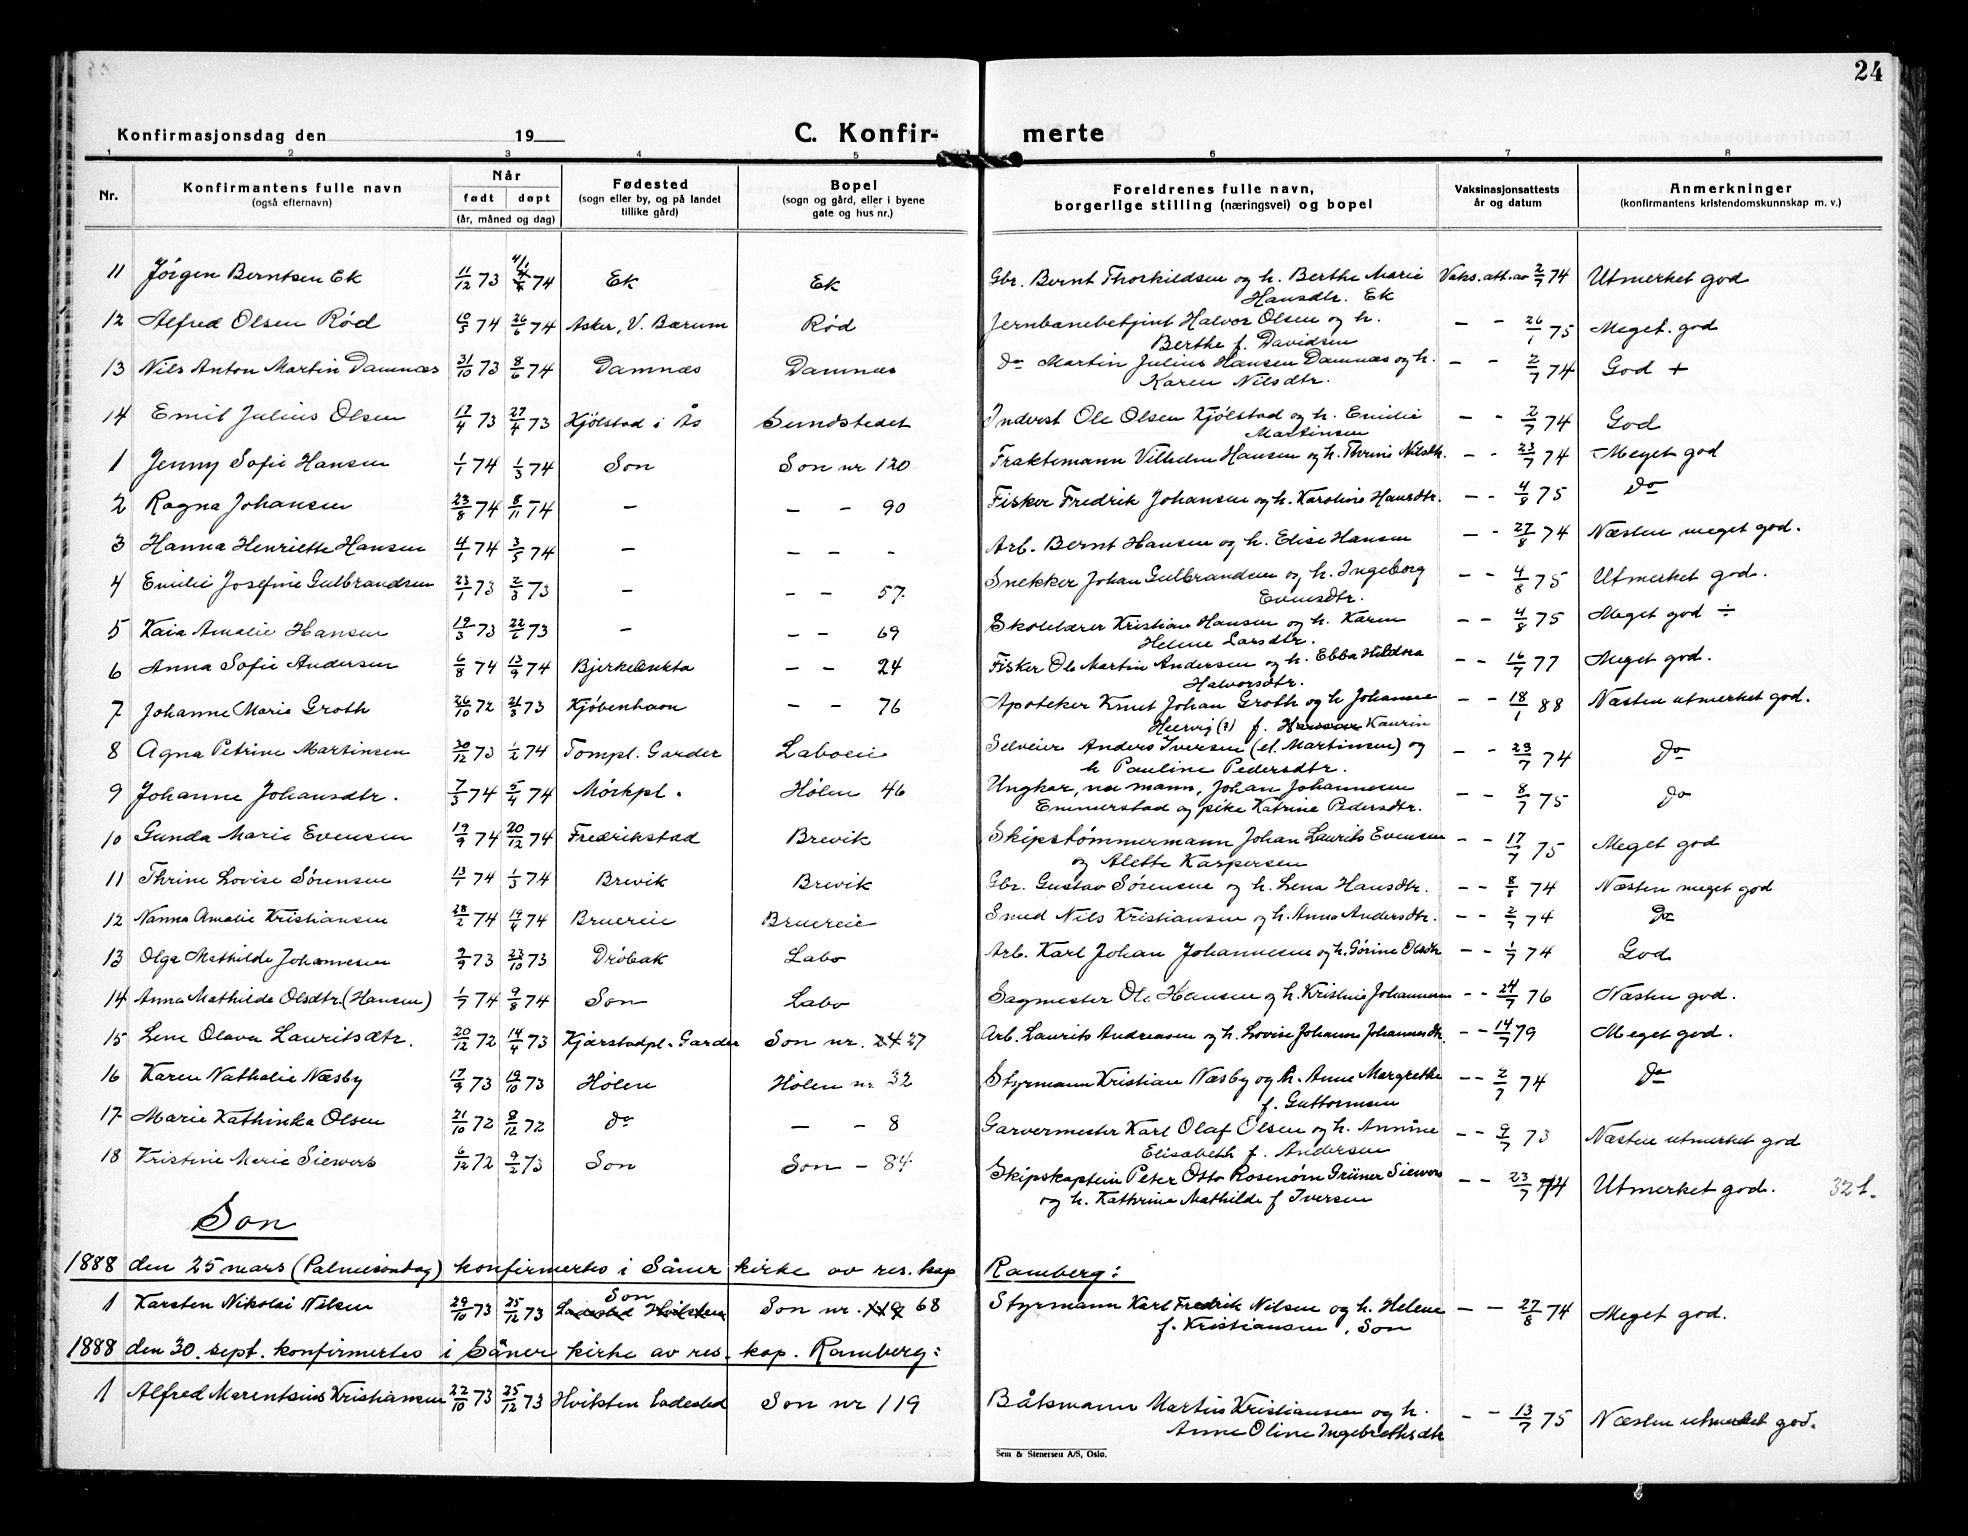 24
Konfirmasjonsdag den 19
C. Konfir- merte
1 2 3 4 5 6 7 8
Nr.
Konfirmantens fulle navn
(også efternavn)
Når
født døpt
(år, måned og dag)
Fødested
(sogn eller by, og på landet
tillike gård)
Bopel
(sogn og gård, eller i byene
gate og hus nr.)
Foreldrenes fulle navn,
borgerlige stilling (næringsvei) og bopel
Vaksinasjonsattests
år og datum
Anmerkninger
(konfirmantens kristendomskunnskap m. v.)
11 Jörgen Berntsen Ek 11/12 73 74 Ek Ek Gbr. Bernt Thorkildsen og h. Berthe Marie Vaks.att. av 2/7 74 Utmerket god
Hansdtr. Ek
12 Alfred Olsen Rød 10/5 74 26/6 74 Asker, V. Bærum Rød Jernbanebetjent Halvor Olsen og h. — - 26/1 75 Meget god
Berthe f. Davidsen
13 Nils Anton Martin Damnæs 31/10 73 8/6 74 Damnæs Damnæs do Martin Julius Hansen Damnæs og h. — - 2/7 74 God +
Karen Nilsdtr.
14 Emil Julius Olsen 17/4 73 27/4 73 Kjölstad i Ås Sundstedet Inderst Ole Olsen Kjölstad og h. Emilie — - 2/7 74 God
Martinsen
1 Jenny Sofie Hansen 1/1 74 1/3 74 Son Son nr 120 Fraktemann Vilhelm Hansen og h. Thrine Nilsdtr. — - 23/7 74 Meget god
2 Ragna Johansen 23/8 74 8/11 74 — — - 90 Fisker Fredrik Johansen og h. Karoline Hansdtr. — - 4/8 75 do
3 Hanna Henriette Hansen 4/1 74 3/5 74 — — - - Arb. Bernt Hansen og h. Elise Hansen — - 27/8 74 Næsten meget god.
4 Emilie Josefine Gulbrandsen 23/1 73 2/3 73 — — - 57. Snekker Johan Gulbrandsen og h. Ingeborg — - 4/8 75 Utmerket god.
Evensdtr.
5 Kaia Amalie Hansen 19/3 73 22/6 73 — — - 69 Skolelærer Kristian Hansen og h. Karen — - 4/8 75 Meget god ÷
Helene Larsdtr.
6 Anna Sofie Andersen 6/8 74 13/9 74 — - 24 Fisker Ole Martin Andersen og h. Ebba Hildora — - 16/7 77 Meget god.
Halvorsdtr.
7 Johanne Marie Groth 26/10 72 21/3 73 Kjöbenhavn — - 76 Apoteker Knut Johan Groth og h Johanne — - 18/1 88 Næsten utmerket god.
Hervig (?) f. Kaurin
8 Agna Petrine Martinsen 30/12 73 1/2 74 Tompl. Garder Laboeie Selveier Anders Iversen (el. Martinsen) og — - 23/7 74 do
h Pauline Pedersdtr.
9 Johanne Johansdtr. 7/3 74 5/4 74 Mörkpl. Hölen 46 Ungkar, nu mann, Johan Johannesen — - 8/7 75 do
Emmerstad og pike Katrine Pedersdtr.
10 Gunda Marie Evensen 19/9 74 20/12 74 Fredrikstad Brevik Skipstömmermann Johan Laurits Evensen — - 17/7 75 Meget god
og Alette Kaspersen
11 Thrine Lovise Sörensen 13/1 74 1/3 74 Brevik Brevik Gbr. Gustav Sörensen og h. Lena Hansdtr. — - 8/8 74 Næsten meget god
12 Nanna Amalie Kristiansen 28/2 74 19/4 74 Bruereie Bruereie Smed Nils Kristiansen og h. Anna Andersdtr. — - 2/7 74 do
13 Olga Mathilde Johannesen 9/9 73 23/10 73 Dröbak Labo Arb. Karl Johan Johannesen og h. Görine Olsdtr — - 1/7 74 God
14 Anna Mathilde Olsdtr. (Hansen) 1/7 74 9/8 74 Son Labo Sagmester Ole Hansen og h. Kristine Johannesen — - 24/7 76 Næsten god.
15 Lene Olava Lauritsdtr. 20/12 72 14/4 73 Kjærstadpl. Garder Son nr. 24 27 Arb. Laurits Andreasen og h. Lovise Johanne Johannesdtr. — - 14/7 79 Meget god.
16 Karen Nathalie Næsby 17/9 73 19/10 73 Hölen Hölen nr. 32 Styrmann Kristian Næsby og h. Anne Margrethe — - 2/7 74 do
f. Guttormsen
17 Marie Kathinka Olsen 21/10 72 8/12 72 do — - 8 Garvermester Karl Olaf Olsen og h. Annine — - 9/7 73 Næsten utmerket god
Elisabeth f. Andersen
18 Kristine Marie Siewers 6/12 72 9/2 73 Son Son - 84 Skipskaptein Peter Otto Rosenörn Grüner Siewers — - 23/7 74 Utmerket god. 321.
og h. Kathrine Mathilde f Iversen
Son
1888 den 25 mars (Palmesöndag) konfirmertes i Såner kirke av res. kap Ramberg:
Son
1 Karsten Nikolai Nilsen 29/10 73 25/12 73 Ladested Hvitsten Son nr. 119 68 Styrmann Karl Fredrik Nilsen og h. Helene — - 27/8 74 Meget god.
f. Kristiansen, Son
1888 den 30. sept. konfirmertes i Såner kirke av res. kap. Ramberg:
1 Alfred Marentsius Kristiansen 22/10 73 25/12 73 Hvitsten Ladested Son nr 119 Båtsmann Martin Kristiansen og h. — - 13/7 75 Næsten utmerket god.
Anne Oline Ingebrethsdtr
Sem & Stenersen A/S, Oslo.